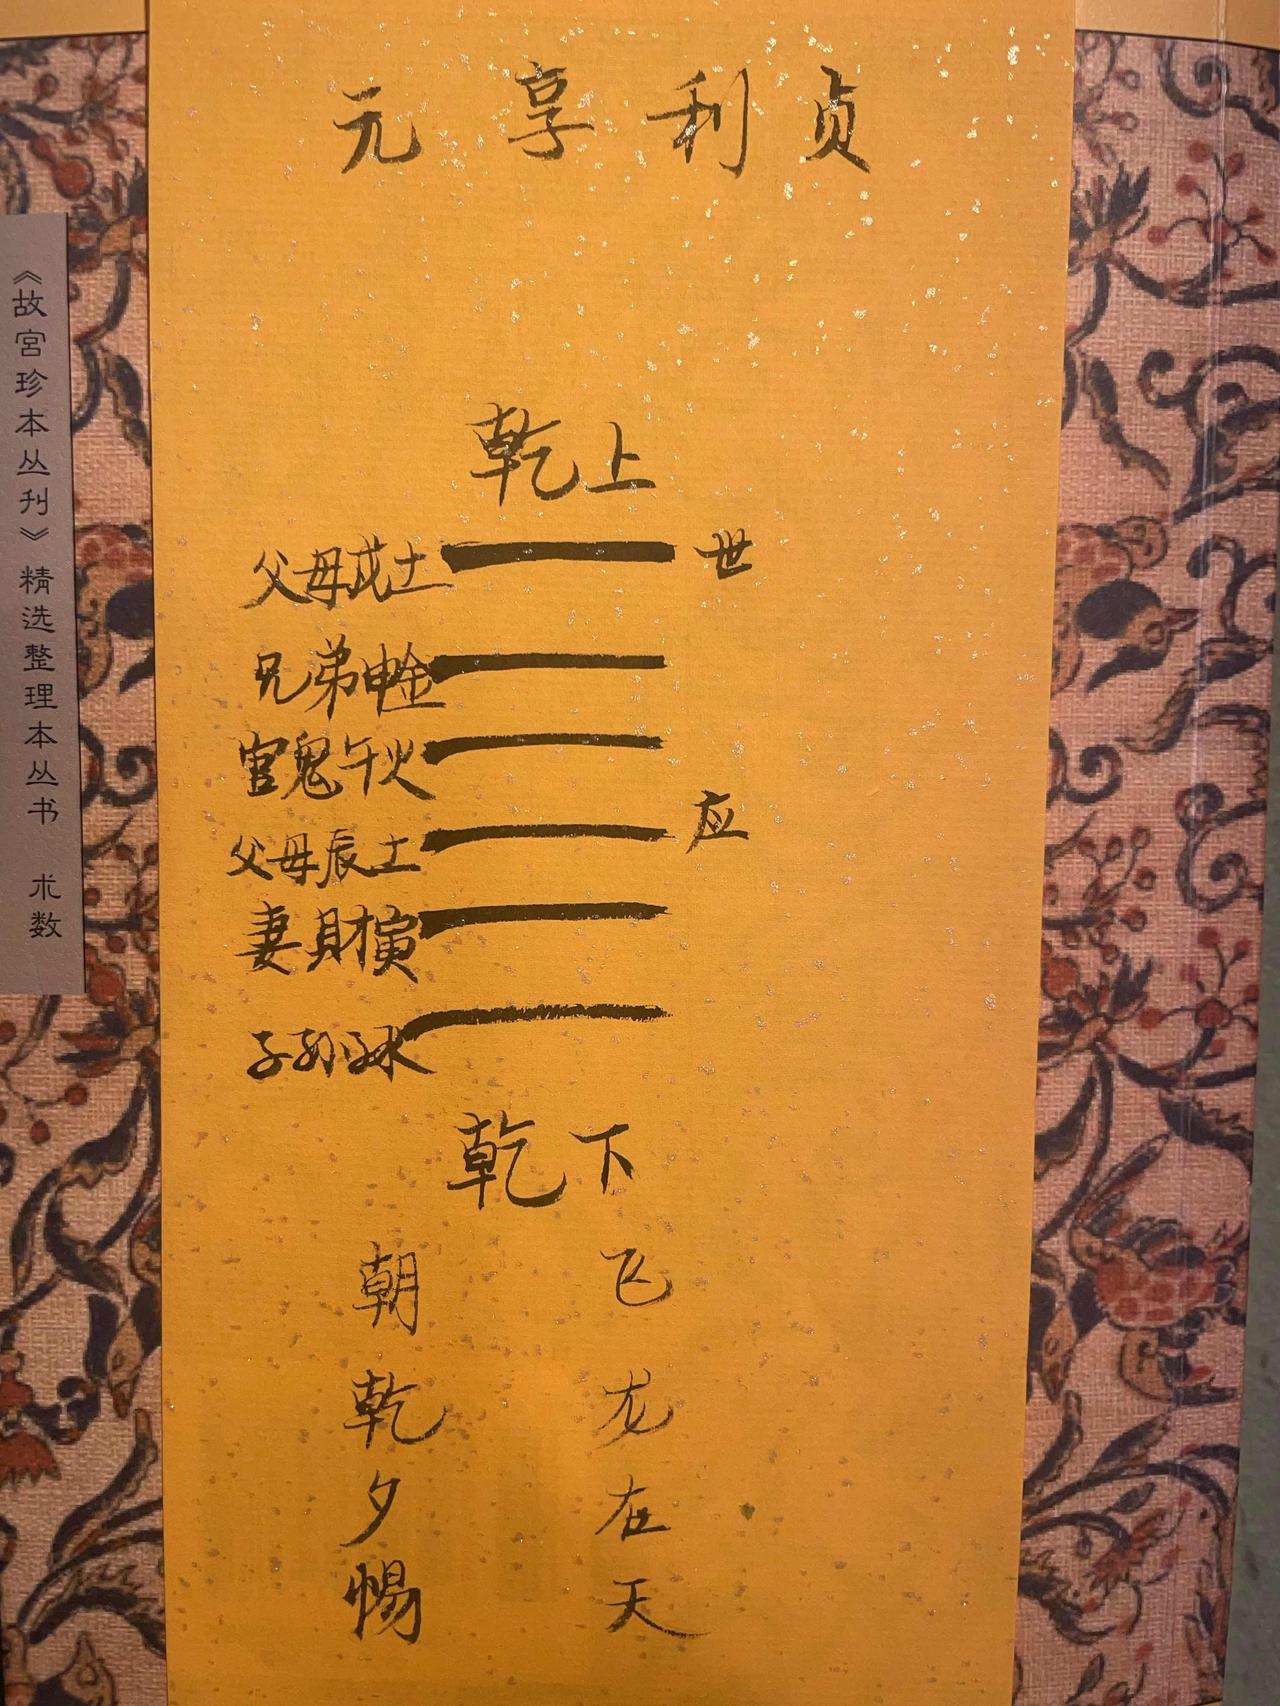 元享利贞
乾上
父母戌土 世
兄弟申金
官鬼午火
父母辰土 应
妻財寅
子孙子水
乾下
朝乾夕惕
飞龙在天
《故宮珍本丛刊》精选整理本丛书 术数